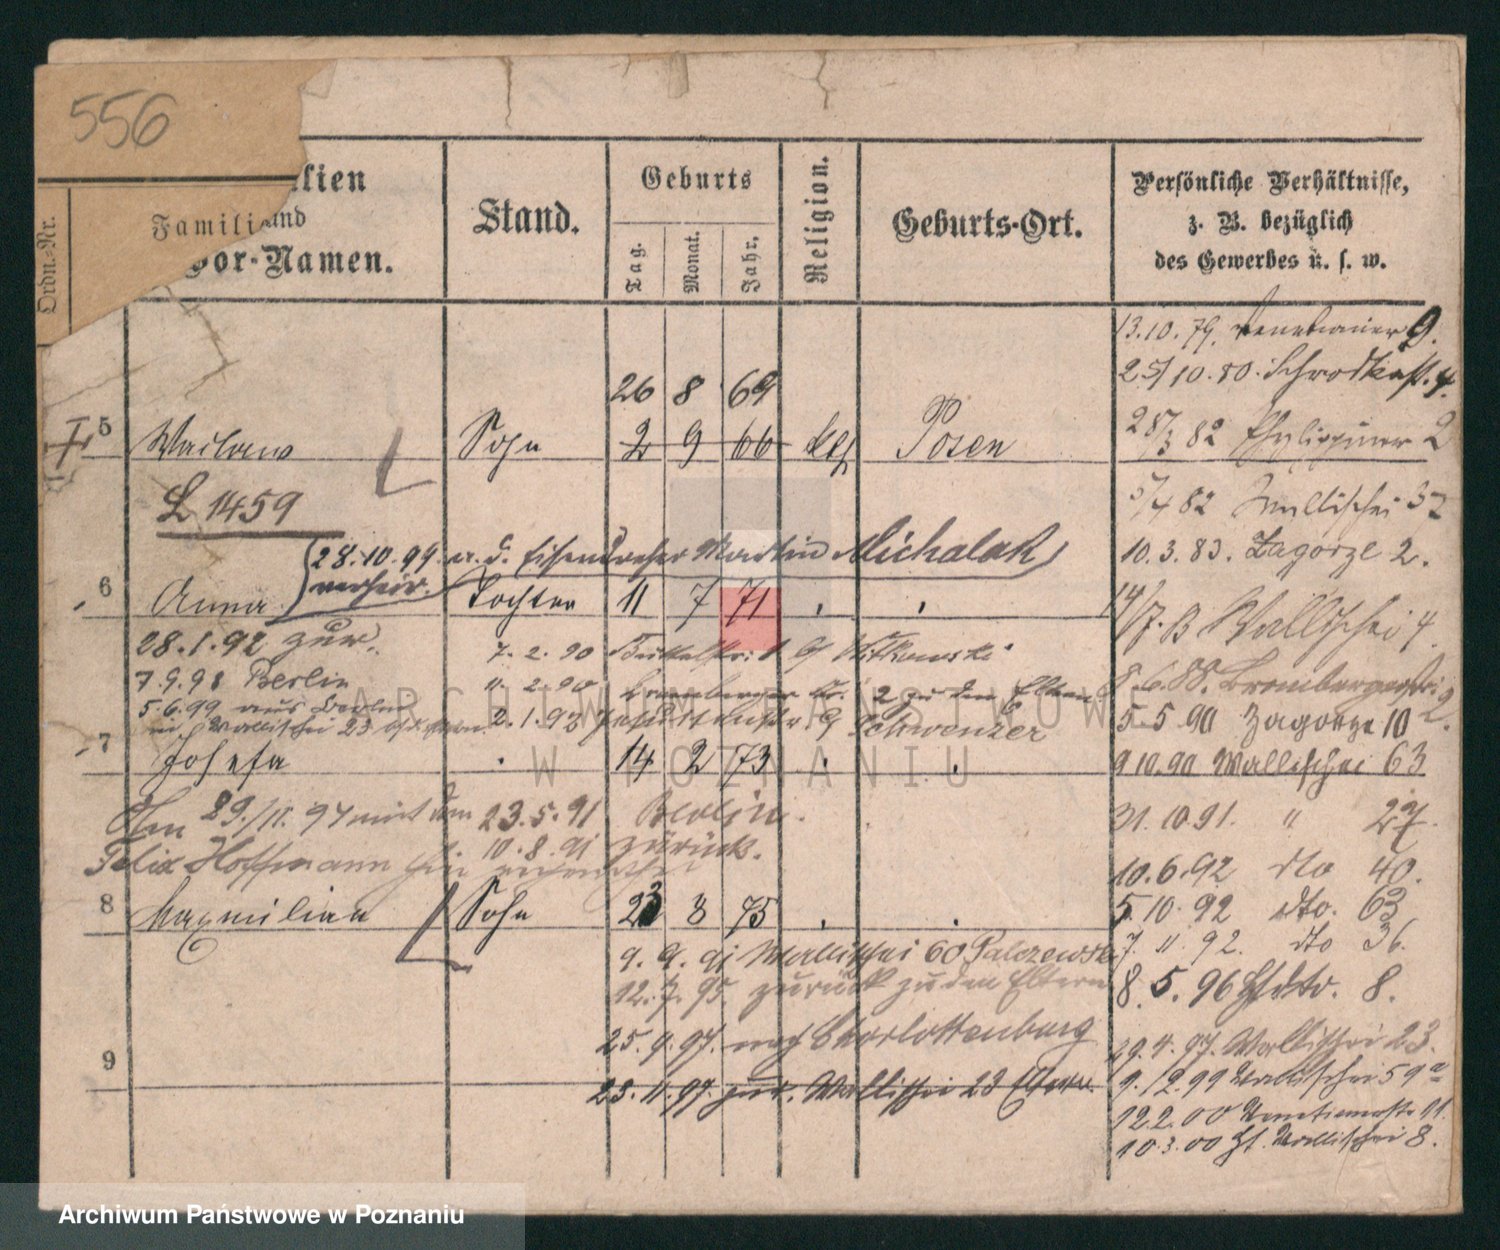 556
Ordn.-Nr.
Familien
und
Vor-Namen.
Stand.
Geburts
Tag.
Monat.
Jahr.
Religion.
Geburts-Ort.
Persönliche Verhältnisse,
z. B. bezüglich
des Gewerbes u. s. w.
13.10.79. 9.
25/10.80. Schrodkast. 4.
26 8 69
5 Waclaw Sohn 2 9 66 kth Posen
28/3 82 2
L 1459
5/4 82 Wallischei 37
28.10.99 m. d. Eisendreher Martin Michalak
verheir.
10.3.83. Zagorze 2.
6 Anna Tochter 11 7 71
14/7. Wallischei 4.
28.1.92 zur.
7. 2. 90 Witkowski
7.9.98 Berlin
11. 2. 90 Bromberger Str. 2 zu den Eltern
.6.88. Brombergerstr. 2.
5.6.99 aus Berlin
in Wallischei 23
2.1.93 Jesuitenstr. 9 Schwenzer
5.5.90 Zagorze 10
7 Josefa 14 2 73
9 10.90 Wallischei 63
Am 29./11.97 mit dem
23.5.91 Berlin.
31.10.91. " 27.
Felix Hoffmann
10.8.91 zurück.
10.6.92 dto 40.
8 Maxmilian Sohn 23 8 75
5.10.92 dto. 63
9. 9. 91 Wallischei 60 Palczewski
7. 11. 92. dto 36.
12.7.95. zurück zu den Eltern
8. 5. 96 8.
25.9.97. nach Charlottenburg
29.4.97. Wallischei 23.
9
23.11.97. zur. Wallischei 23 Eltern.
9.12.99 Wallischei 59a
12.2.00 Venetianerstr. 11.
10.3.00 Wallischei 8.
ARCHIWUM PAŃSTWOWE
W POZNANIU
Archiwum Państwowe w Poznaniu